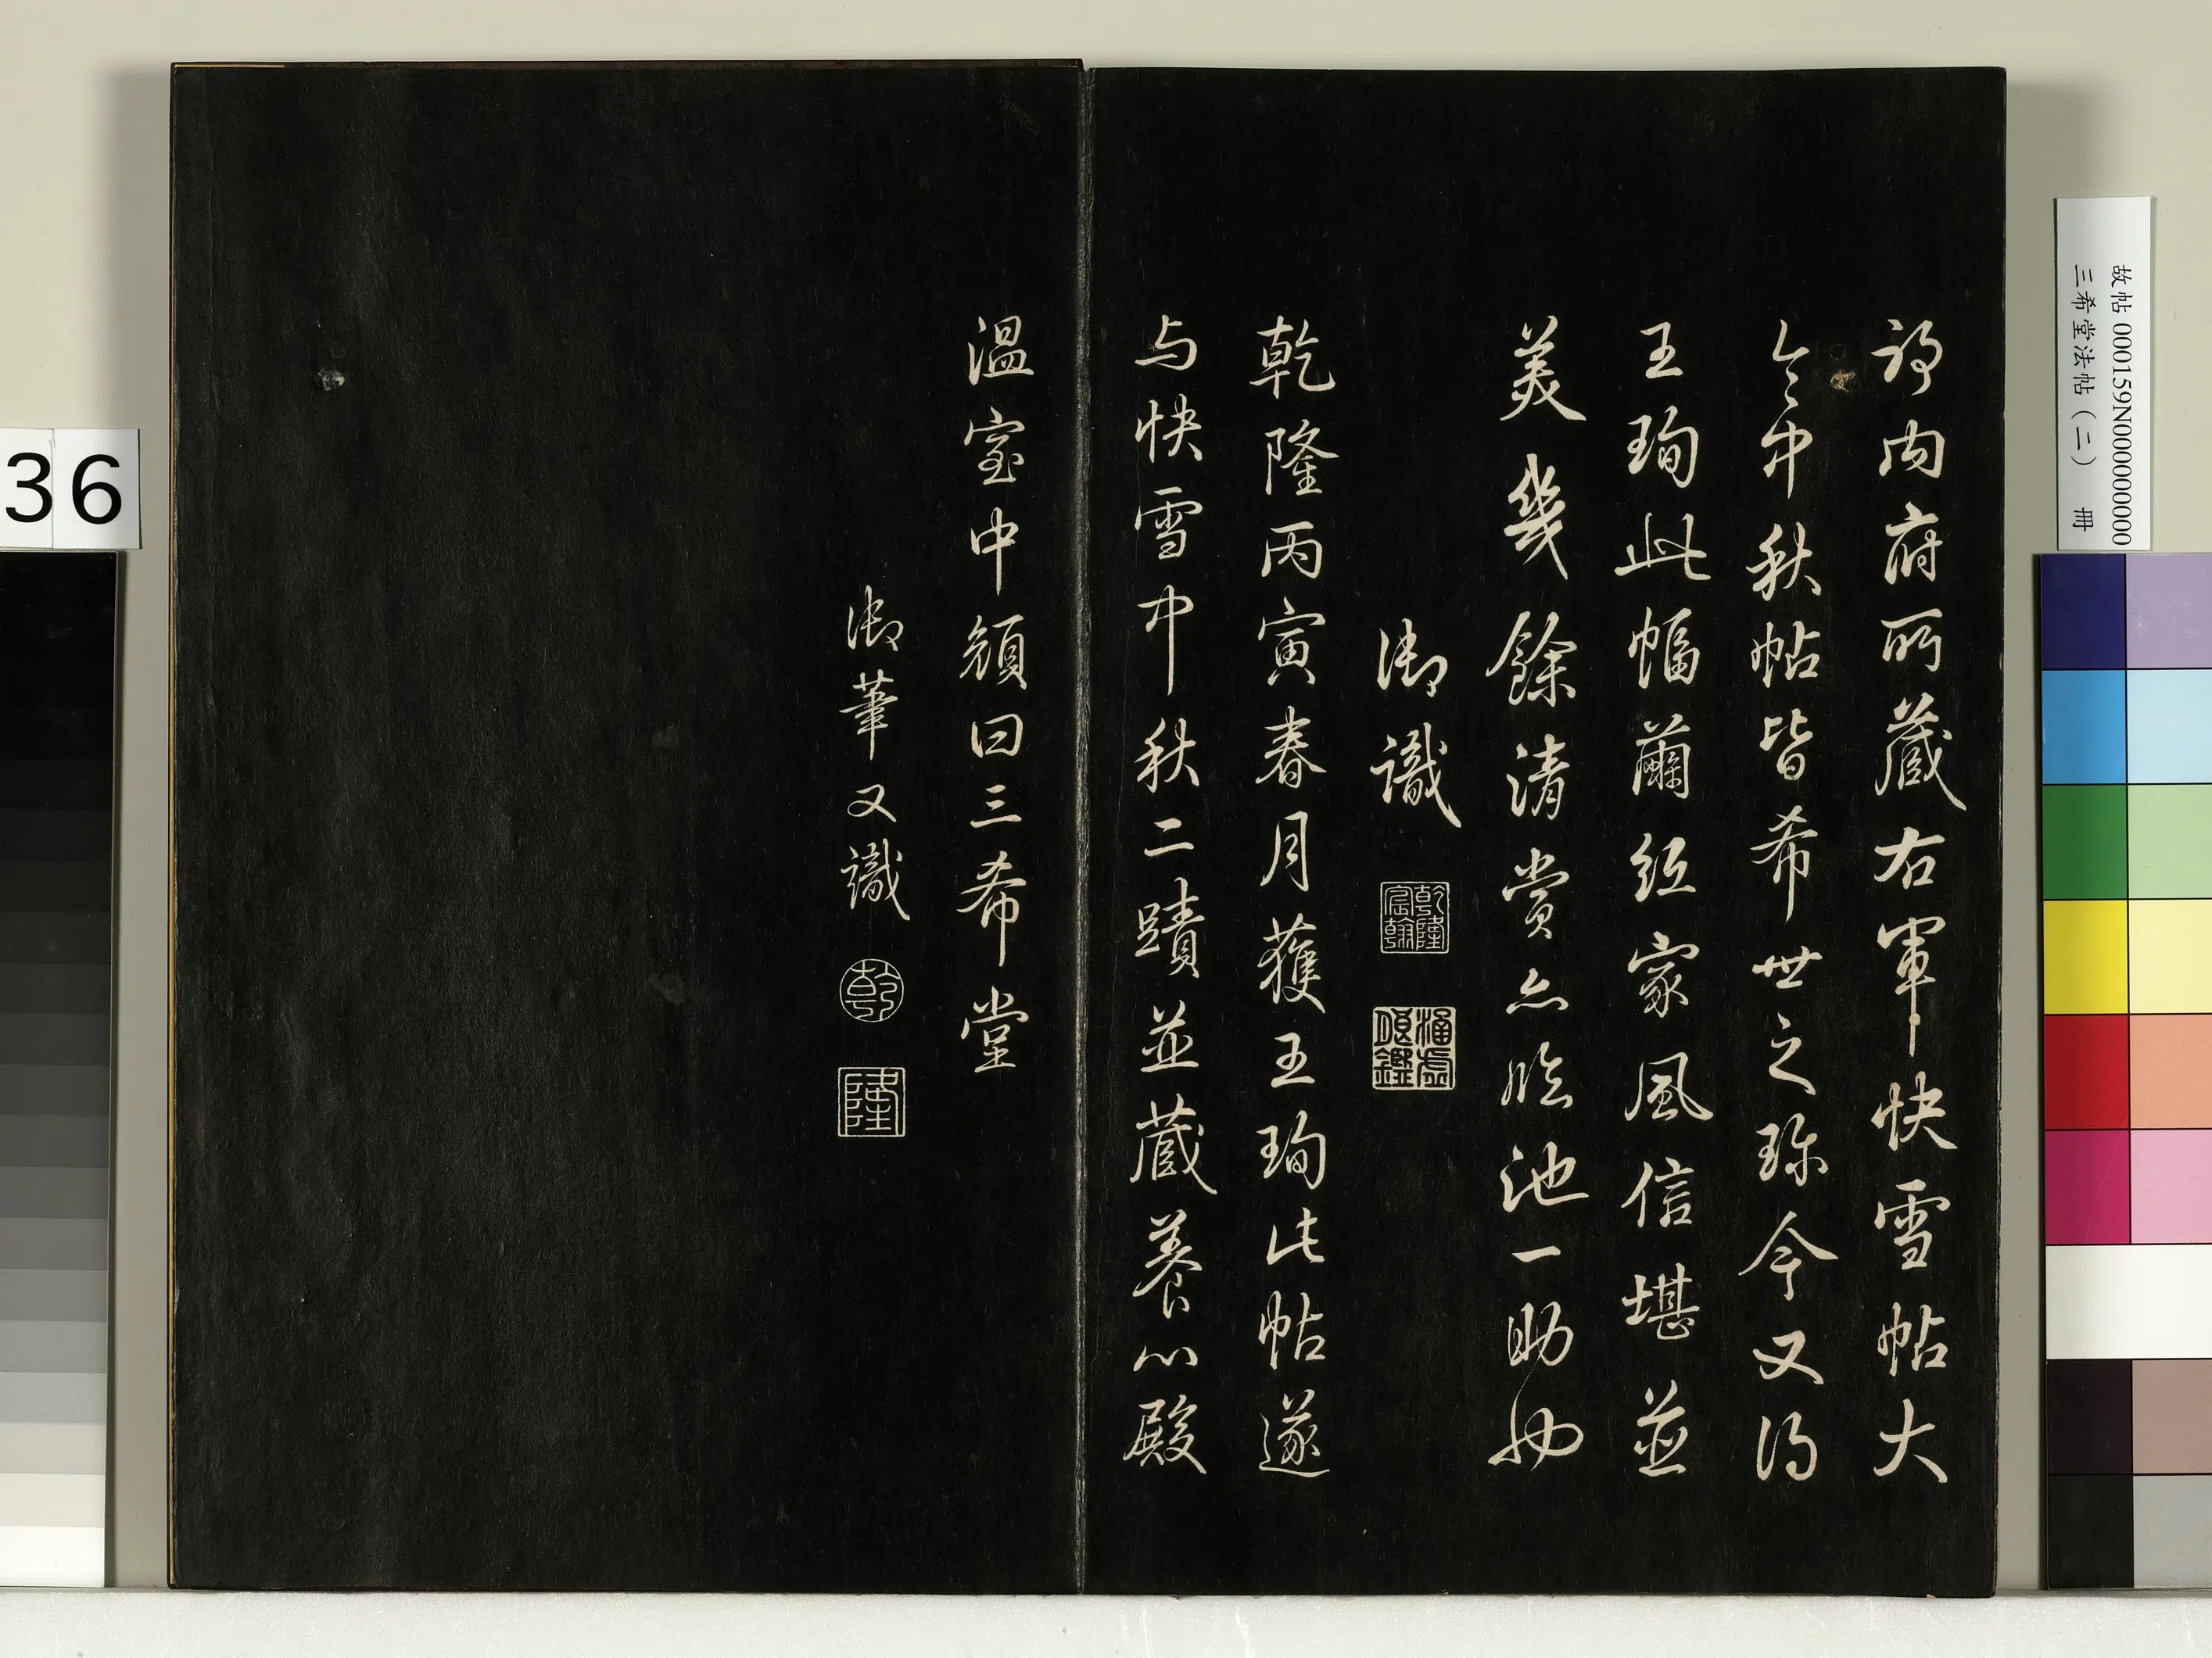 所內府所藏右軍快雪帖大
令中秋帖皆希世之珎今又得
王珣此幅繭紙家風信堪並
美幾餘清賞亦臨池一助也
御識
乾隆宸翰
涵虛朗鑑
乾隆丙寅春月獲王珣此帖遂
与快雪中秋二蹟並藏養心殿
溫室中顏曰三希堂
御筆又識
乾
隆
故帖 000159N000000000
三希堂法帖（二） 冊
36